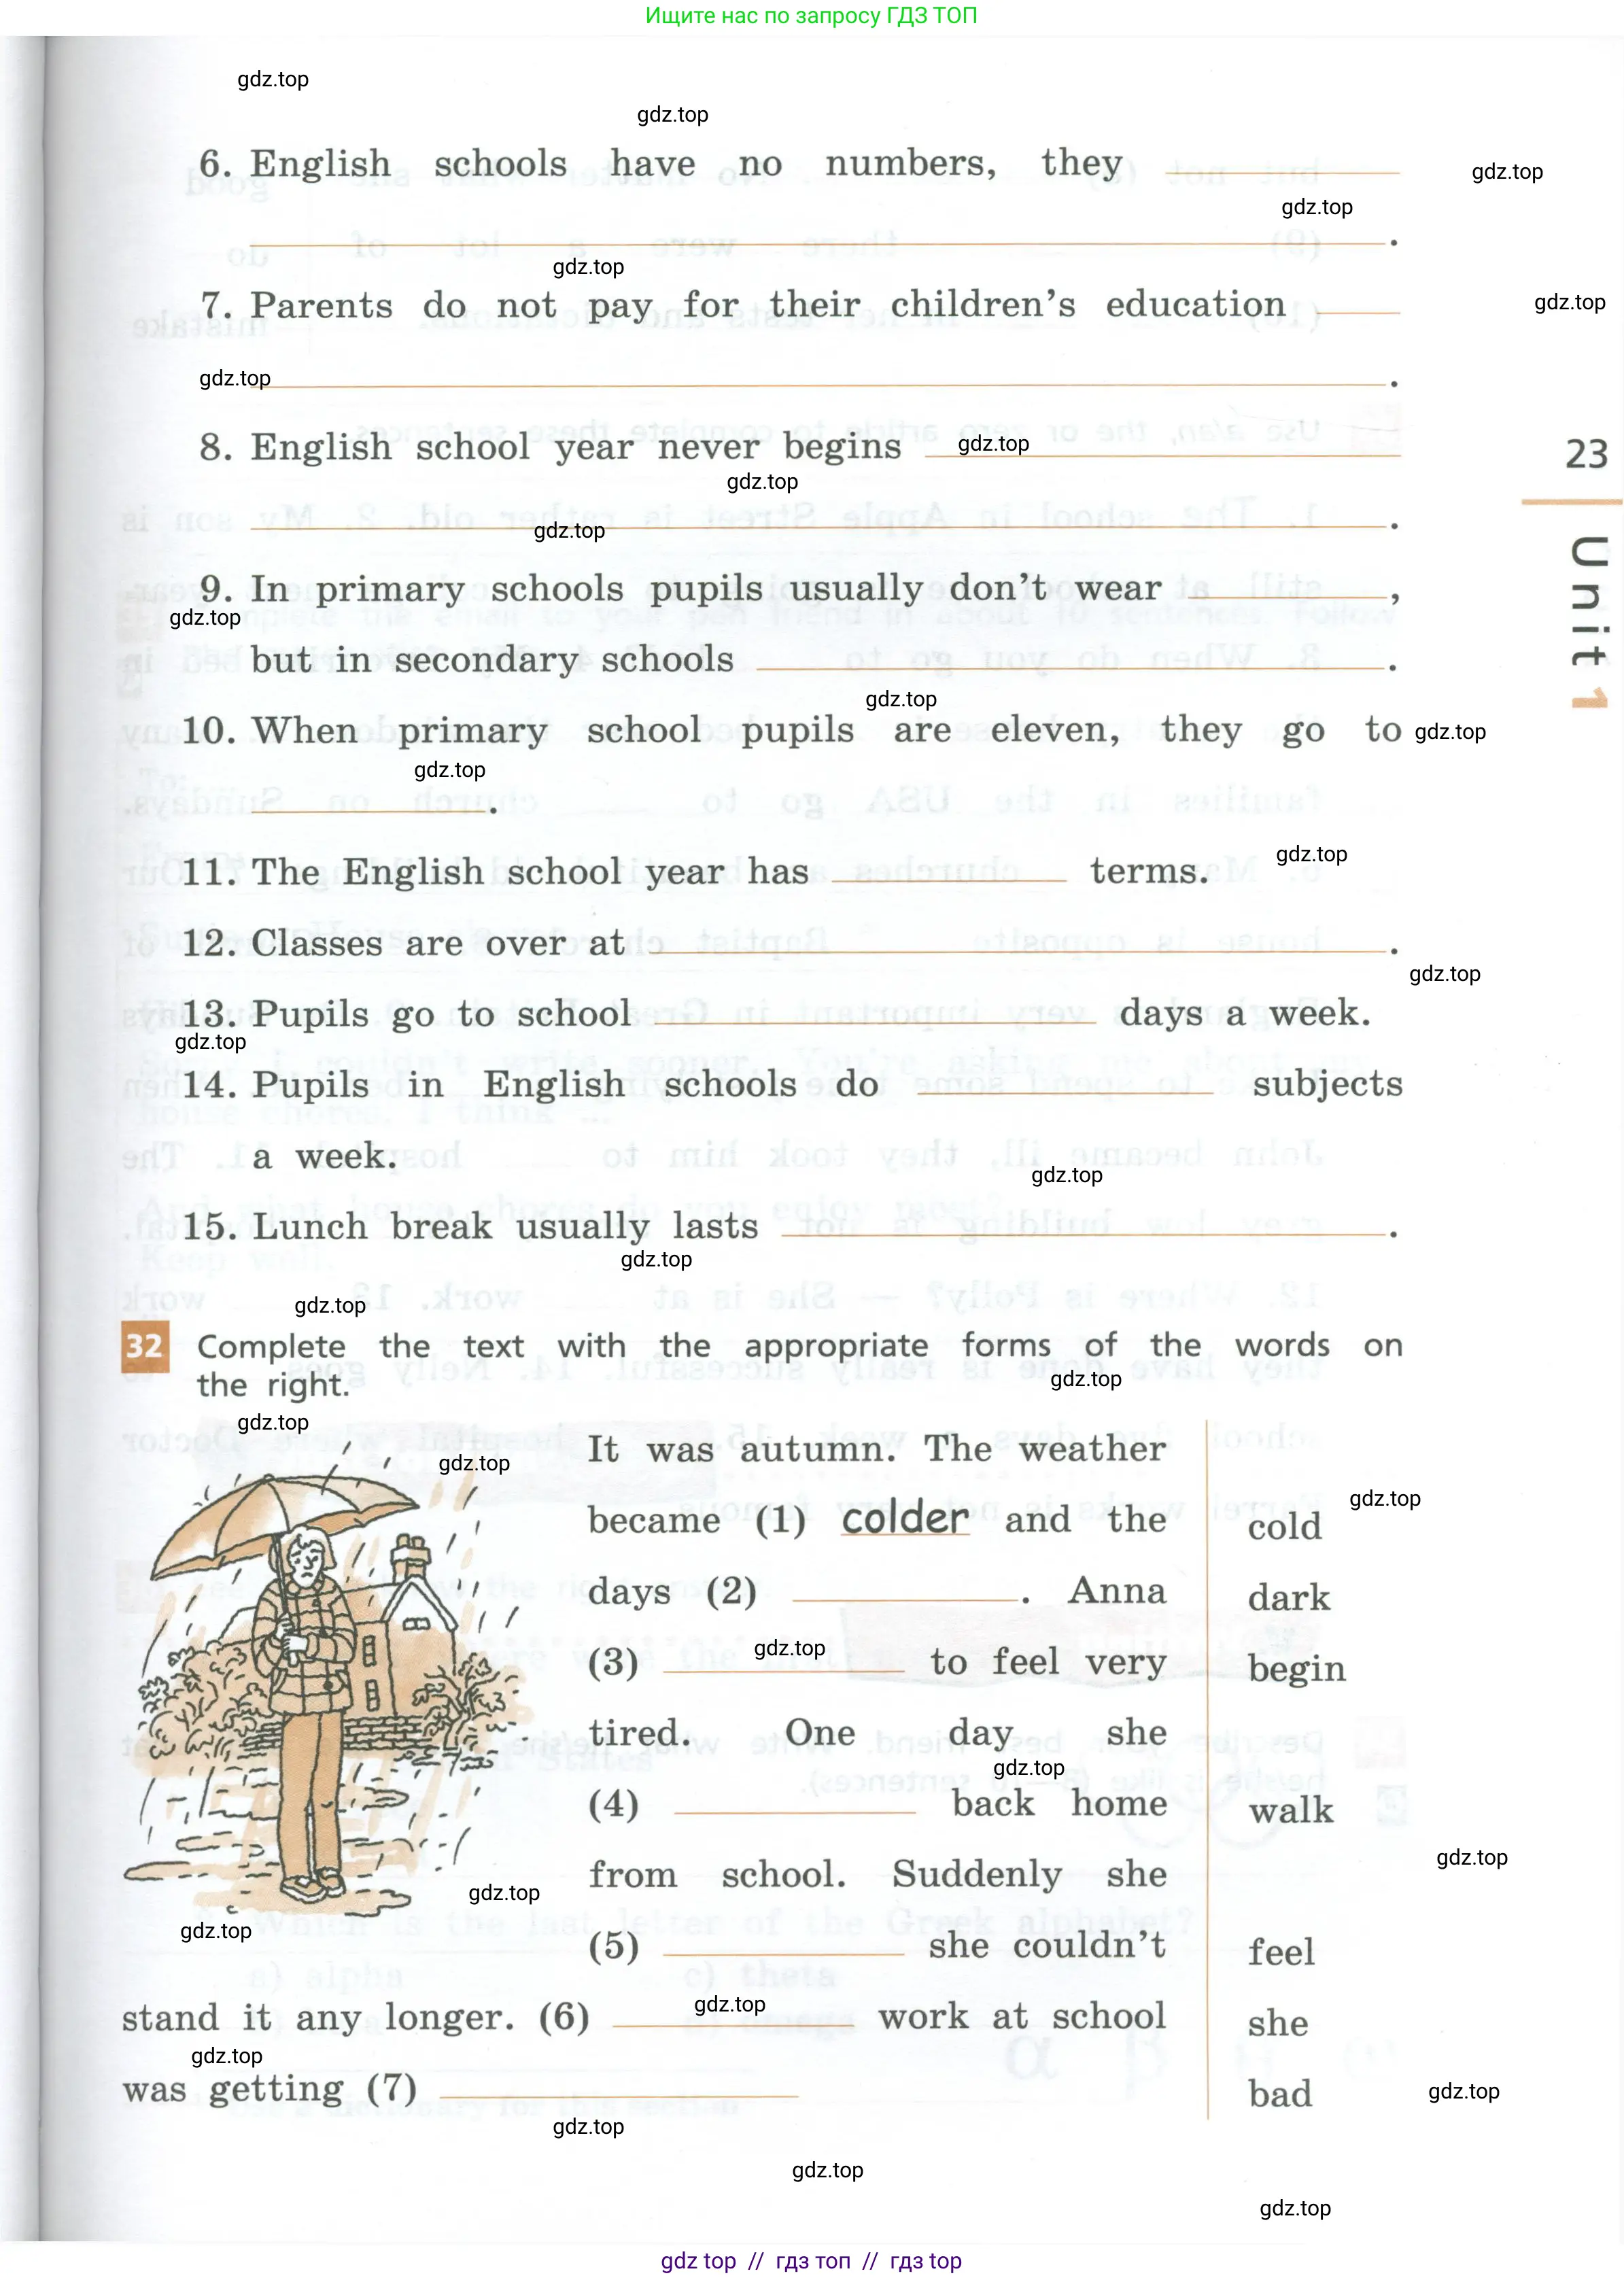 Ищите нас по запросу ГДЗ ТОП
gdz.top
gdz.top
6. English schools have no numbers, they
gdz.top
gdz.top
.
gdz.top
7. Parents do not pay for their children's education
gdz.top
gdz.top
.
8. English school year never begins
gdz.top
23
gdz.top
gdz.top
.
Unit 1
9. In primary schools pupils usually don't wear ,
gdz.top
but in secondary schools .
gdz.top
10. When primary school pupils are eleven, they go to
gdz.top
gdz.top
.
11. The English school year has terms.
gdz.top
12. Classes are over at .
gdz.top
13. Pupils go to school days a week.
gdz.top
14. Pupils in English schools do subjects
a week.
gdz.top
15. Lunch break usually lasts .
gdz.top
gdz.top
32 Complete the text with the appropriate forms of the words on
the right.
gdz.top
gdz.top
It was autumn. The weather
gdz.top
gdz.top
became (1) colder and the cold
days (2) . Anna dark
gdz.top
(3) to feel very begin
tired. One day she
gdz.top
(4) back home walk
gdz.top
from school. Suddenly she
gdz.top
gdz.top
(5) she couldn't feel
gdz.top
stand it any longer. (6) work at school she
gdz.top
was getting (7) bad
gdz.top
gdz.top
gdz.top
gdz.top
gdz top // гдз топ // гдз top